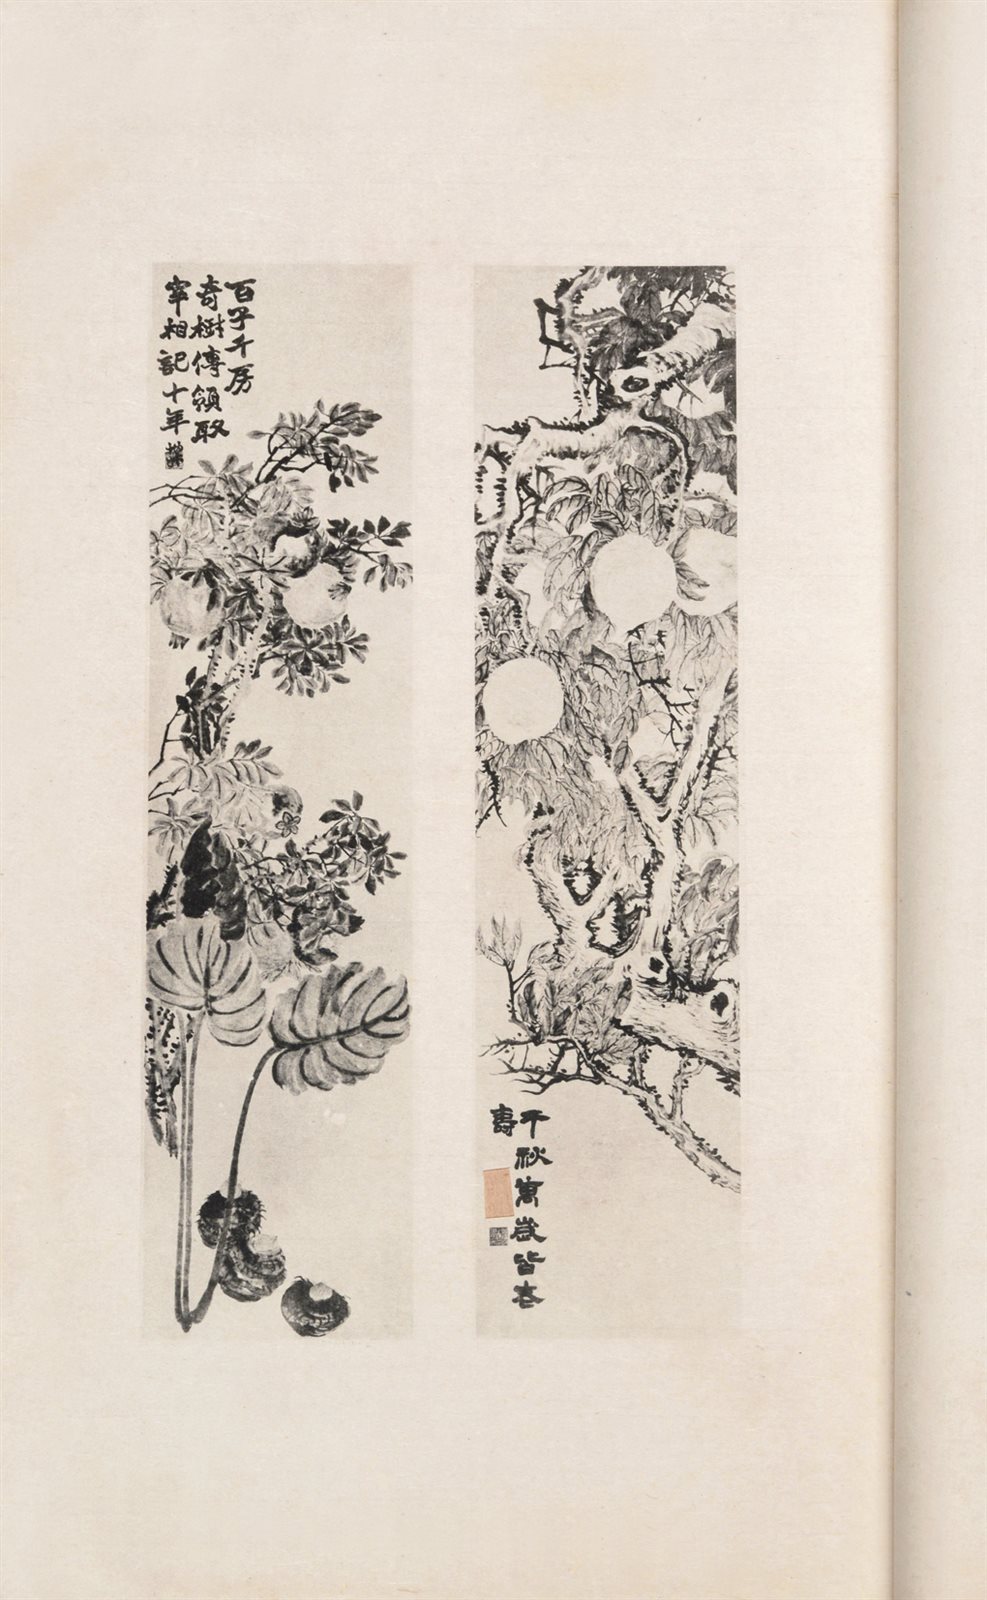 千秋萬歲皆老
壽
百子千房
奇樹傳領取
宰相記十年